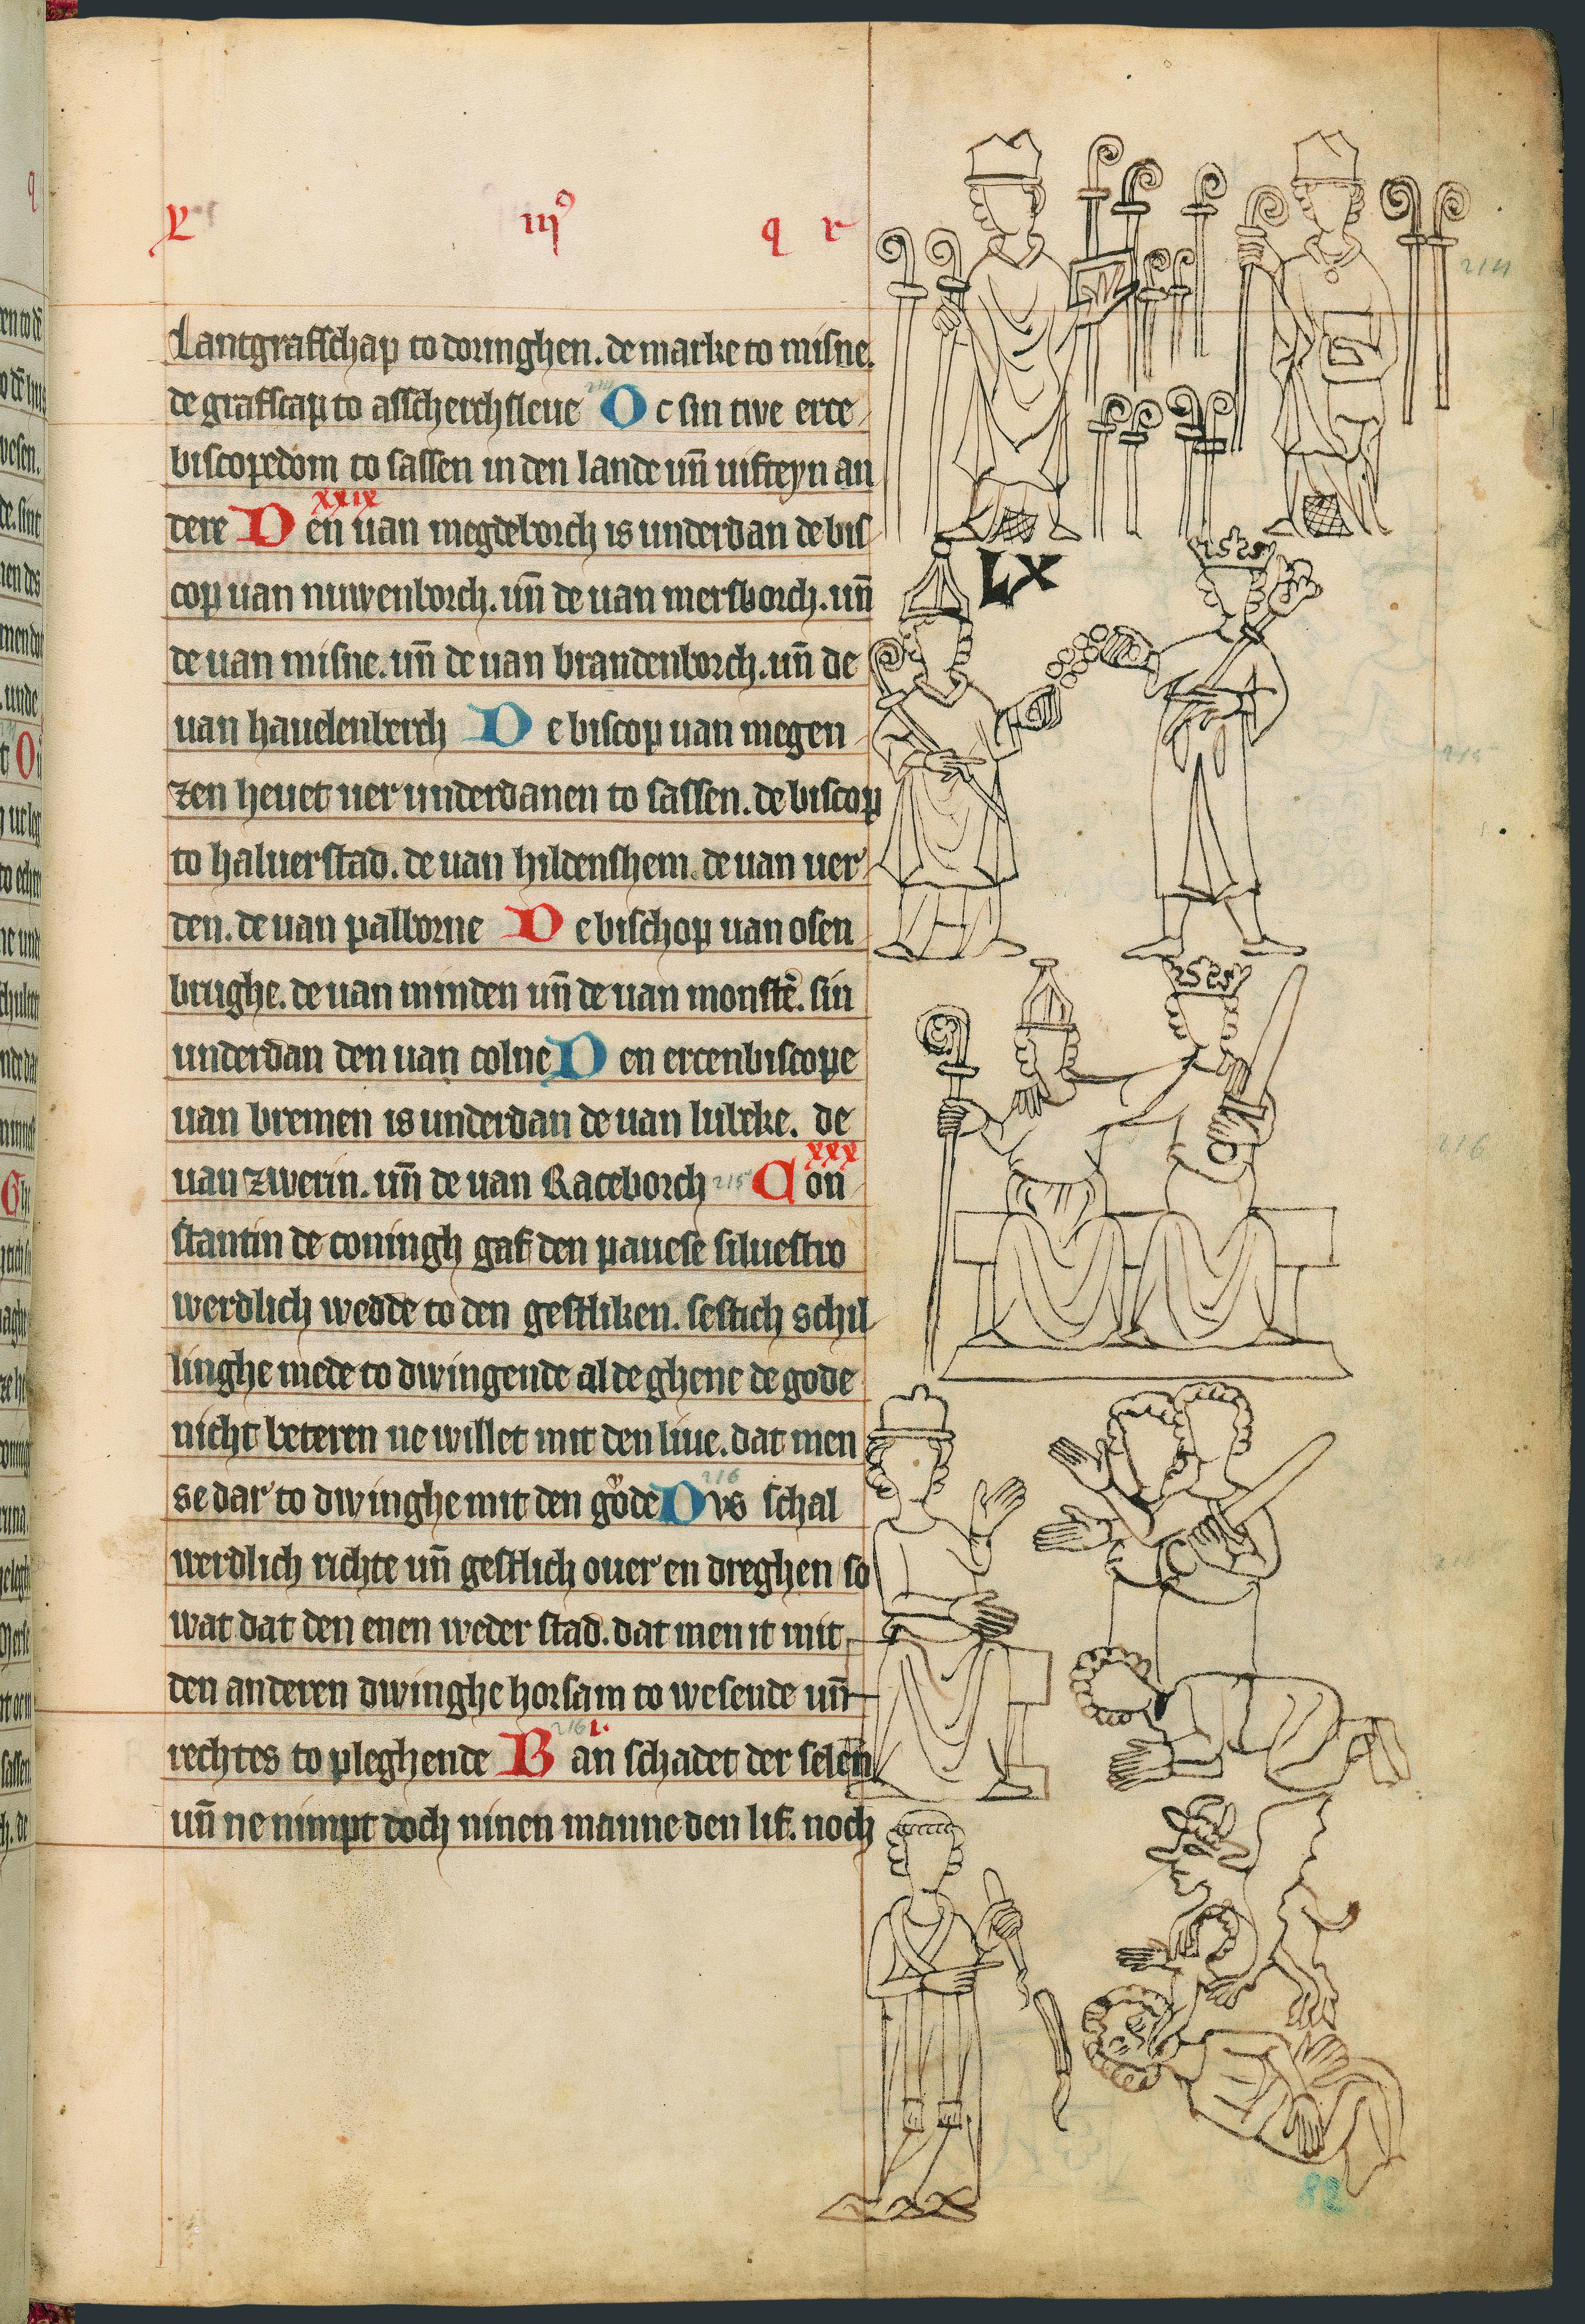 L iijꝰ q r
Lantgrafschap to doringhen. de marke to misne.
de grafscap to asscherchsleue Oc sin twe erce
biscopedom to sassen in den lande uñ uifteyn an
xxix
dere Den uan megdeborch is underdan de bis
cop uan nuwenborch. uñ de uan mersborch. uñ
de uan misne. uñ de uan brandenborch. uñ de
uan hauelenberch De biscop uan megen
zen heuet uer underdanen to sassen. de biscop
to haluerstad. de uan hildenshem. de uan uer
den. de uan palborne De bischop uan osen
brughe. de uan minden uñ de uan monstē. sin
underdan den uan colne Den ercenbiscope
uan bremen is underdan de uan lubeke. de
xxx
uan zwerin. uñ de uan Raceborch 215 Con
stantin de coningh gaf den pauese siluestro
werdlich wedde to den gestliken. sestich schil
linghe mede to dwingende al de ghene de gode
nicht beteren ne willet mit den liue. dat men
216
se dar to dwinghe mit den gŏde Dvs schal
werdlich richte uñ gestlich ouer en dreghen so
wat dat den enen weder stad. dat men it mit
den anderen dwinghe horsam to wesende uñ
216 i.
rechtes to pleghende Ban schadet der selen
uñ ne nimpt doch ninen manne den lif. noch
LX
215
216
82